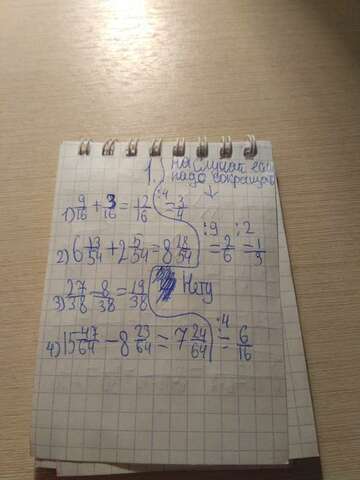 1.) на случай если
надо сокращать
1) 9/16 + 3/16 = 12/16 :4 = 3/4
2) 6 13/54 + 2 5/54 = 8 18/54 :9 = 2/6 :2 = 1/3
3) 27/38 - 8/38 = 19/38 Нету
4) 15 47/64 - 8 23/64 = 7 24/64 :4 = 6/16